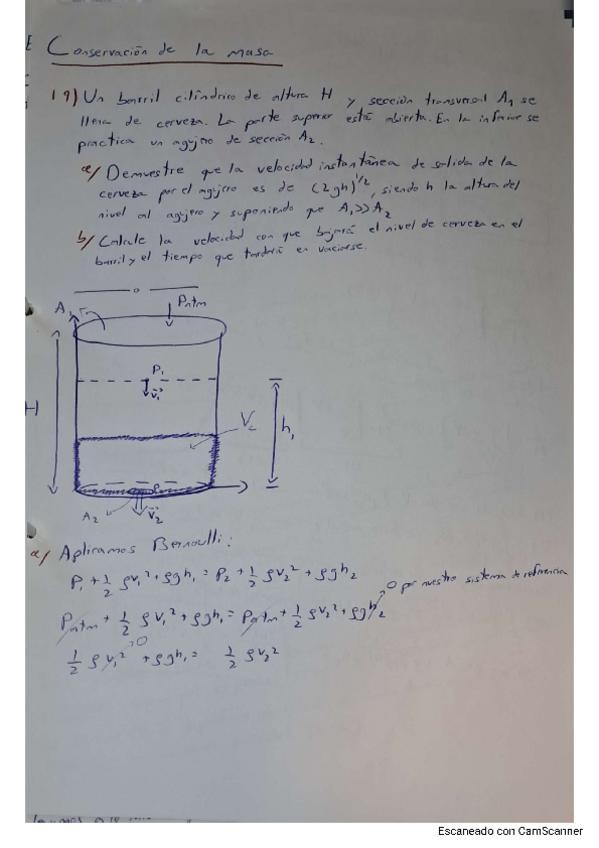 Conservación de la masa
19) Un barril cilíndrico de altura H y sección transversal A₁ se
llena de cerveza. La parte superior está abierta. En la inferior se
practica un agujero de sección A₂.
a/ Demuestre que la velocidad instantánea de salida de la
cerveza por el agujero es de (2gh)^1/2, siendo h la altura del
nivel al agujero y suponiendo que A₁>>A₂
b/ Calcule la velocidad con que bajará el nivel de cerveza en el
barril y el tiempo que tardará en vaciarse.
A₁
Patm
P₁
v₁
H
Vc
h₁
A₂
v₂
a/ Aplicamos Bernoulli:
P₁ + 1/2 ρv₁² + ρgh₁ = P₂ + 1/2 ρv₂² + ρgh₂
0 por nuestro sistema de referencia
Patm + 1/2 ρv₁² + ρgh₁ = Patm + 1/2 ρv₂² + ρgh₂
0
1/2 ρv₁² + ρgh₁ = 1/2 ρv₂²
Escaneado con CamScanner